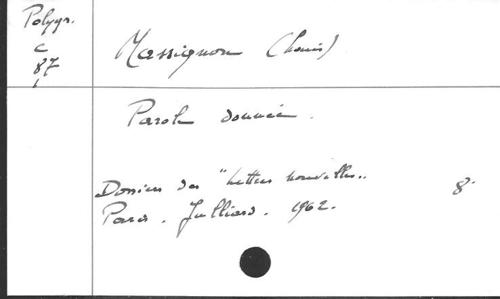 Polygr.
C
87
1
Massignon (Louis)
Parole donnée.
Dossiers des "Lettres nouvelles"
8°
Paris. Julliard. 1962.